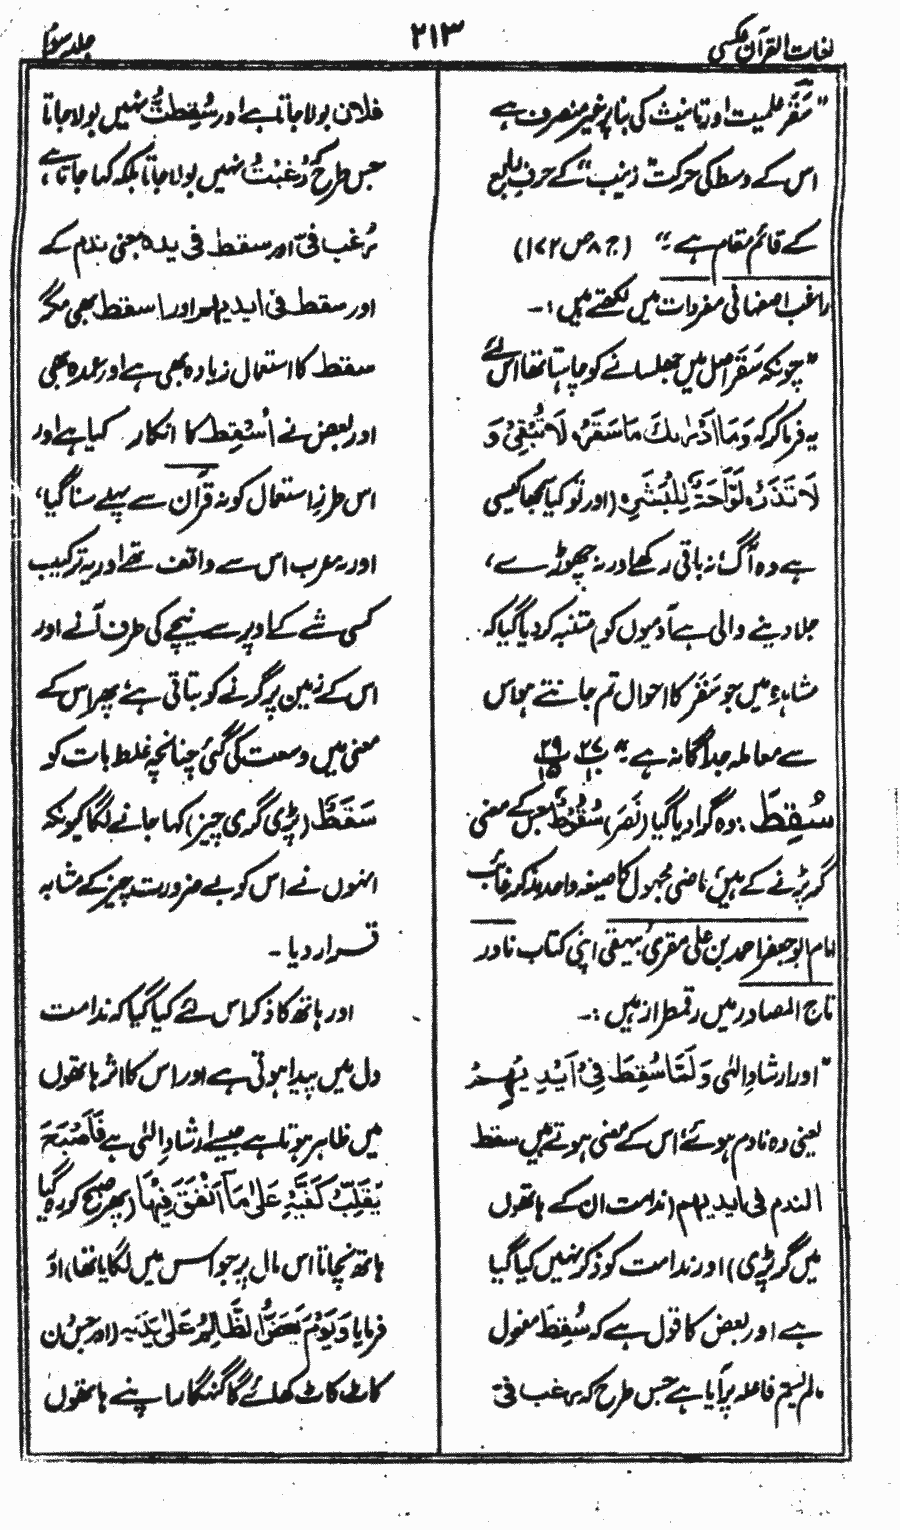 لغات القرآن عکسی
۲۱۳
جلد سوم
"سَقَر علمیت اور تانیث کی بنا پر غیر منصرف ہے
اس کے وسط کی حرکت "زینب" کے حرفِ رابع
کے قائم مقام ہے" (ج ۸ ص ۱۷۲)
راغب اصفہانی مفردات میں لکھتے ہیں :-
"چونکہ سَقَر اصل میں جھلسانے کو چاہتا تھا اس لئے
یہ فرما کر کہ وَمَا اَدْرٰىكَ مَا سَقَرُ، لَا تُبْقِیْ وَ
لَا تَذَرُ، لَوَّاحَةٌ لِّلْبَشَرِ، (اور تو کیا سمجھا کیسی
ہے وہ آگ، نہ باقی رکھے اور نہ چھوڑے،
جلا دینے والی ہے آدمیوں کو) متنبہ کر دیا گیا کہ
مشاہدہ میں جو سَقَر کا احوال تم جانتے ہو اس
سے معاملہ جداگانہ ہے" پ ۲۷ ۱۰ پ ۲۹ ۱۵
سُقِطَ :۔ وہ گرا دیا گیا (نَصَرَ) سُقُوْطٌ جس کے معنی
گر پڑنے کے ہیں، ماضی مجہول کا صیغہ واحد مذکر غائب
امام ابو جعفر احمد بن علی مقری بیہقی اپنی کتاب نادر
تاج المصادر میں رقمطراز ہیں :-
"اور ارشادِ الٰہی وَلَمَّا سُقِطَ فِیْ اَیْدِیْهِمْ
یعنی وہ نادم ہوئے، اس کے معنی ہوتے ہیں سقط
الندم فی ایدیہم (ندامت ان کے ہاتھوں
میں گر پڑی) اور ندامت کو ذکر نہیں کیا گیا
ہے اور بعض کا قول ہے کہ سُقِطَ مفعول
مالم یسم فاعلہ پر آیا ہے جس طرح کہ رغب فی
فلان بولا جاتا ہے اور سُقِطْتُ نہیں بولا جاتا
جس طرح کہ رُغِبْتُ نہیں بولا جاتا بلکہ کہا جاتا ہے،
رُغب فیّ اور سقط فی یدہ بمعنی ندم کے
اور سقط فی ایدیہم اور اسقط بھی مگر
سقط کا استعمال زیادہ بھی ہے اور عمدہ بھی
اور بعض نے اُسْقِطَ کا انکار کیا ہے اور
اس طرز استعمال کو نہ قرآن سے پہلے سنا گیا،
اور نہ عرب اس سے واقف تھے اور یہ ترکیب
کسی شے کے اوپر سے نیچے کی طرف آنے اور
اس کے زمین پر گرنے کو بتاتی ہے، پھر اس کے
معنی میں وسعت کی گئی چنانچہ غلط بات کو
سَقَطٌ (پڑی گری چیز) کہا جانے لگا کیونکہ
انہوں نے اس کو بے ضرورت چیز کے مشابہ
قرار دیا ۔
اور ہاتھ کا ذکر اس لئے کیا گیا کہ ندامت
دل میں پیدا ہوتی ہے اور اس کا اثر ہاتھوں
میں ظاہر ہوتا ہے جیسے ارشادِ الٰہی ہے فَاَصْبَحَ
یُقَلِّبُ كَفَّیْهِ عَلٰى مَآ اَنْفَقَ فِیْهَا (پھر صبح کو رہ گیا
ہاتھ نچاتا اس مال پر جو اس میں لگایا تھا) اور
فرمایا وَیَوْمَ یَعَضُّ الظَّالِمُ عَلٰى یَدَیْهِ (اور جس دن
کاٹ کاٹ کھائے گا گنہگار اپنے ہاتھوں